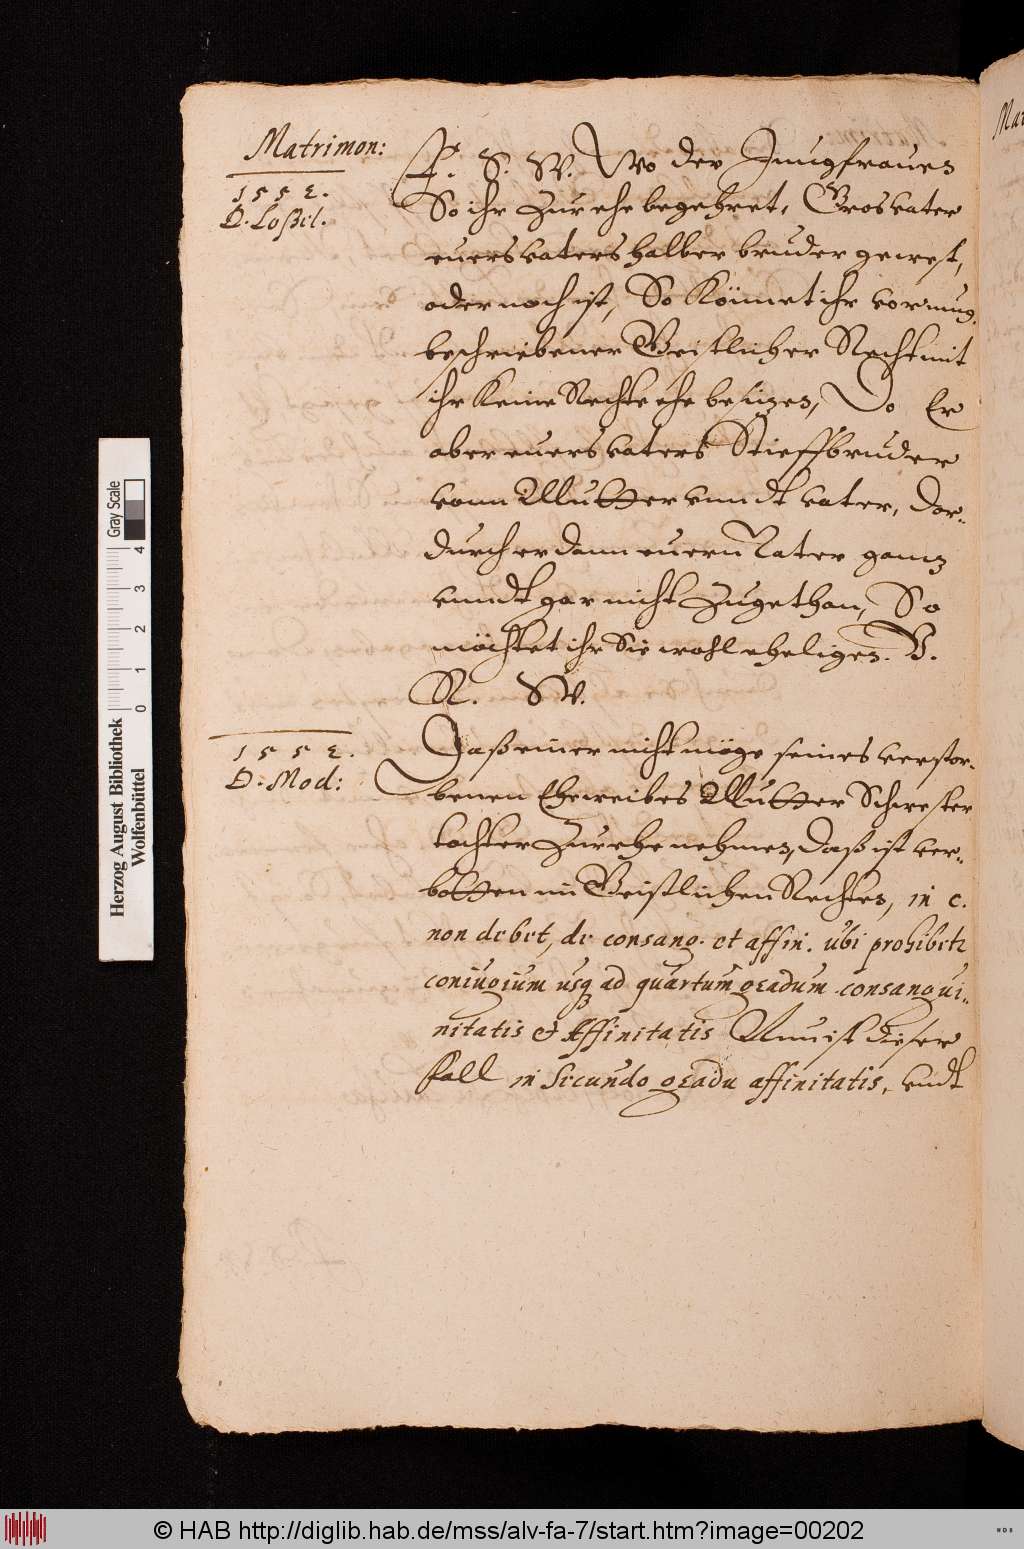 Matrimon:
1552.
D. Loßil.
P. S. W. Wo der Jungfrauen
So ihr Zur ehe begehret, Grosvater
euers vaters halber bruder gewest,
oder noch ist, So Könnet ihr vormug.
beschriebener Geistlicher Recht mit
ihr Keine Rechte ehe besizen, Do Er
aber euers vaters Stieffbruder
vonn Mutter vnndt vater, Dor-
durch er dann euern Vater ganz
vnndt gar nicht Zugethan, So
möchtet ihr Sie wohl eheligen. V.
R. W.
1552.
D. Mod:
Daß einer nicht möge seines verstor-
benen Eheweibes Mutter Schwester
tochter Zur ehe nehmen, Daß ist ver-
botten in Geistlichen Rechten, in c.
non debet, de consang. et affin. ubi prohibetr
coniugium usq ad quartum gradum consangui-
nitatis & Affinitatis Nun ist dieser
fall in Secundo gradu affinitatis, vndt
Mat
Gray Scale
0 1 2 3 4
Herzog August Bibliothek
Wolfenbüttel
© HAB http://diglib.hab.de/mss/alv-fa-7/start.htm?image=00202